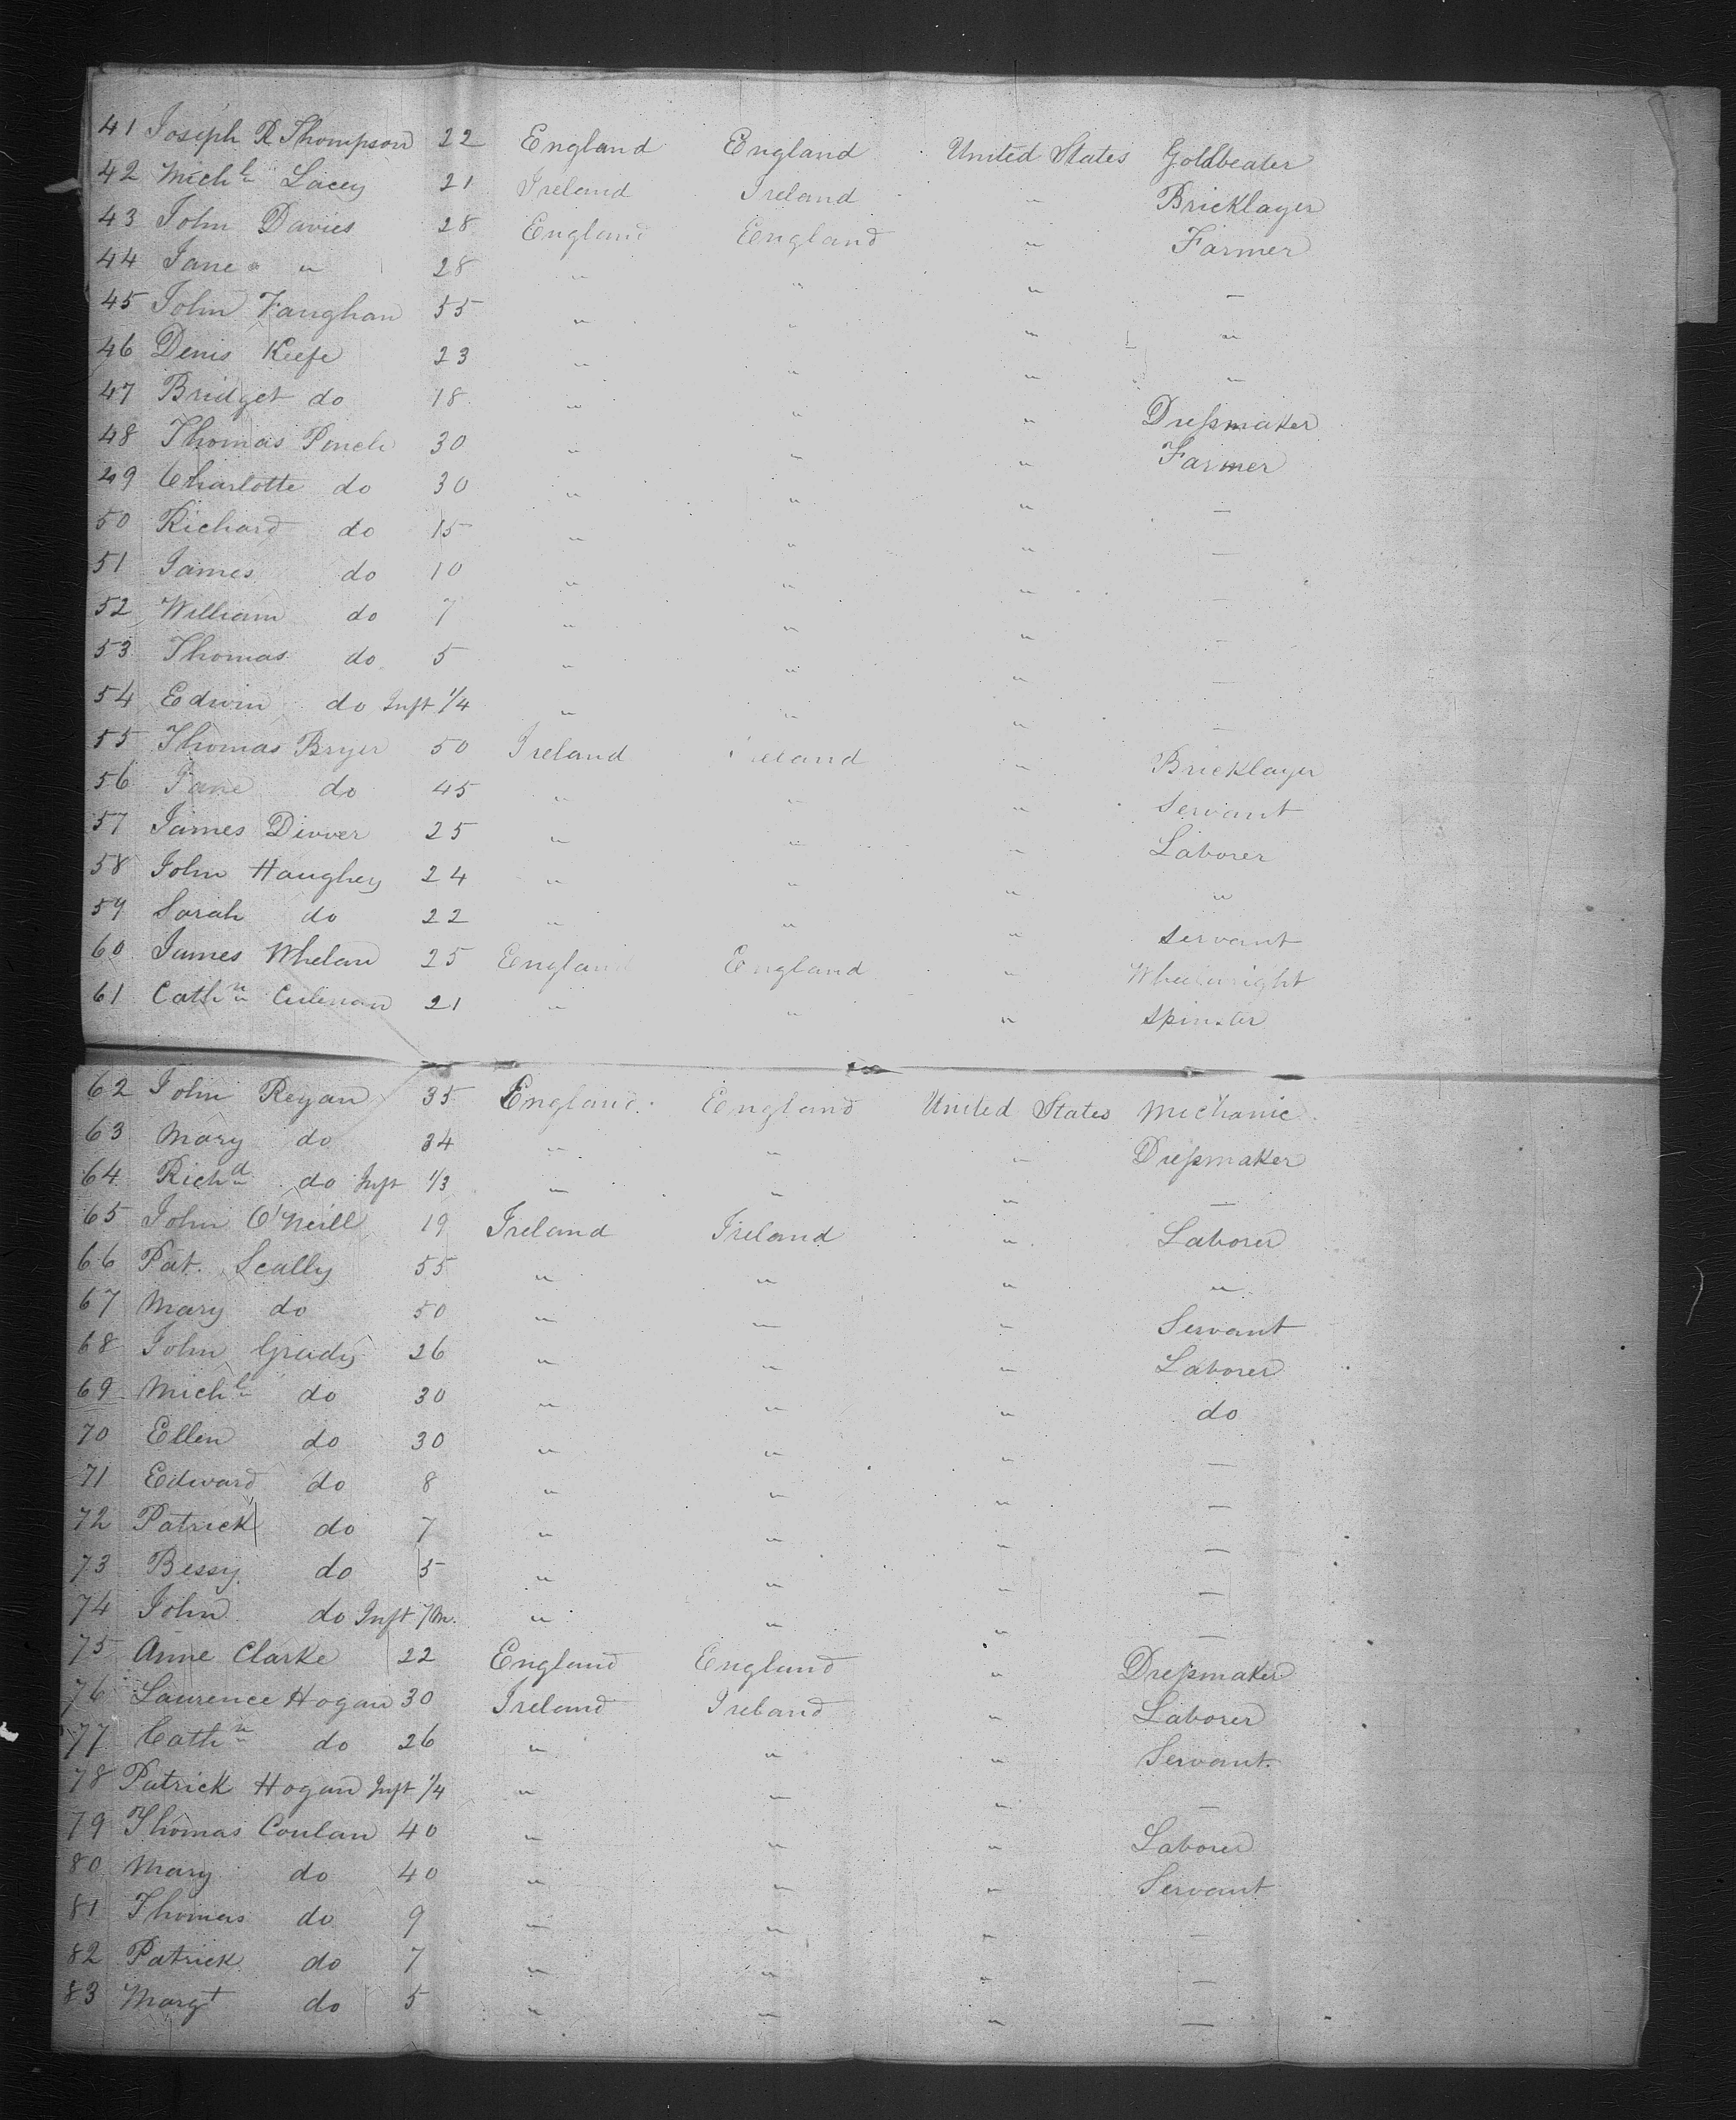 41 Joseph R Thompson 22 England England United States Goldbeater
42 Michl Lacey 21 Ireland Ireland " Bricklayer
43 John Davies 28 England England " Farmer
44 Jane " 28 " " " —
45 John Vaughan 55 " " " "
46 Denis Keefe 23 " " " "
47 Bridget do 18 " " " Dressmaker
48 Thomas 30 " " " Farmer
49 Charlotte do 30 " " " —
50 Richard do 15 " " " —
51 James do 10 " " " —
52 William do 7 " " " —
53 Thomas do 5 " " " —
54 Edwin do Inft 1/4 " " " —
55 Thomas Bryer 50 Ireland Ireland " Bricklayer
56 Jane do 45 " " " Servant
57 James Divver 25 " " " Laborer
58 John Haughey 24 " " " "
59 Sarah do 22 " " " Servant
60 James Whelan 25 England England " Wheelwright
61 Cathn 21 " " " Spinster
62 John Regan 35 England England United States Mechanic
63 Mary do 34 " " " Dressmaker
64 Richd do Inft 1/3 " " " —
65 John O'Neill 19 Ireland Ireland " Laborer
66 Pat. Scally 55 " " " "
67 Mary do 50 " " " Servant
68 John Grady 26 " " " Laborer
69 Michl do 30 " " " do
70 Ellen do 30 " " " —
71 Edward do 8 " " " —
72 Patrick do 7 " " " —
73 Bessy do 5 " " " —
74 John do Inft 7m. " " " —
75 Anne Clarke 22 England England " Dressmaker
76 Laurence Hogan 30 Ireland Ireland " Laborer
77 Cathn do 26 " " " Servant.
78 Patrick Hogan Inft 1/4 " " " —
79 Thomas Conlan 40 " " " Laborer
80 Mary do 40 " " " Servant
81 Thomas do 9 " " " —
82 Patrick do 7 " " " —
83 Margt do 5 " " " —